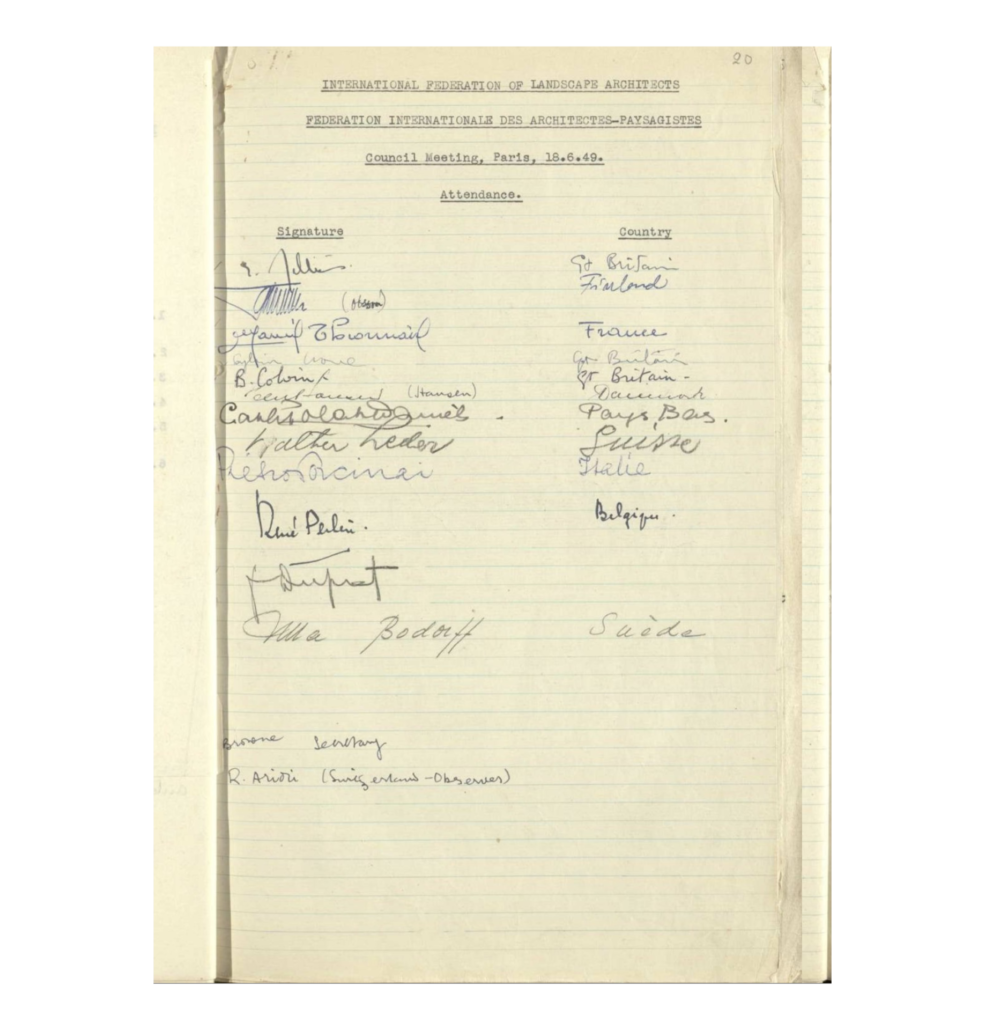 20
INTERNATIONAL FEDERATION OF LANDSCAPE ARCHITECTS
FEDERATION INTERNATIONALE DES ARCHITECTES-PAYSAGISTES
Council Meeting, Paris, 18.6.49.
Attendance.
Signature Country
Gt Britain
Finland
(Olsson)
France
Gt Britain
B. Colvin Gt Britain -
(Hansen) Danmark
Pays, Bas.
Walther Leder Suisse
Pietro Porcinai Italie
René Belgique.
Ulla Bodorff Suède
Browne Secretary
R. Arioli (Switzerland-Observer)